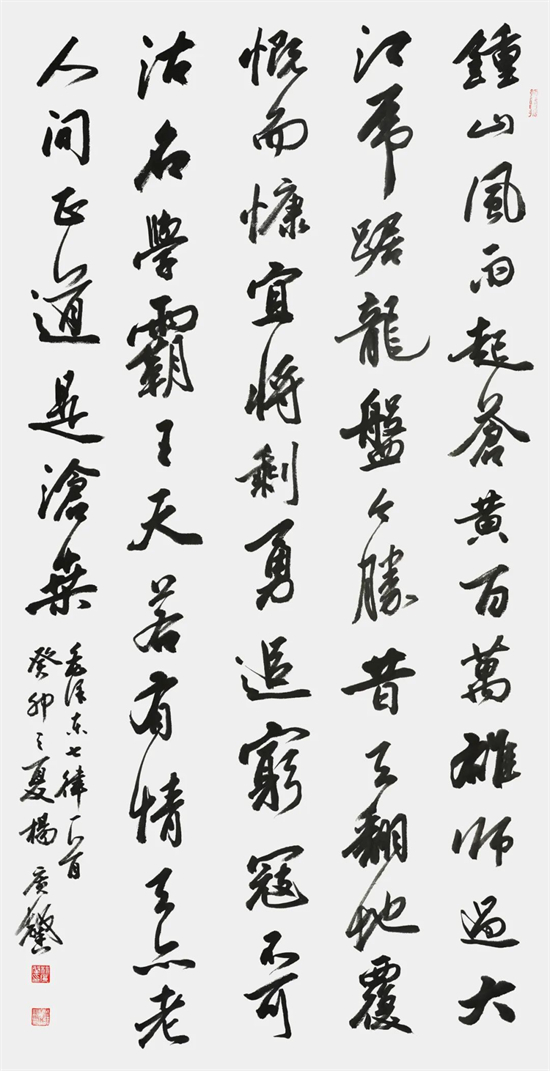 鍾山風雨起蒼黄百萬雄師過大
江虎踞龍盤今勝昔天翻地覆
慨而慷宜將剩勇追窮寇不可
沽名學霸王天若有情天亦老
人间正道是滄桑
毛泽东七律一首
癸卯之夏楊廣馨